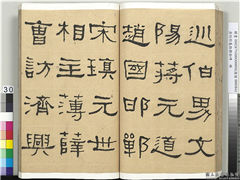 巡伯男文
陽蔣元道
趙國邯鄲
宋瑱元世
相主薄薛
曹訪濟興